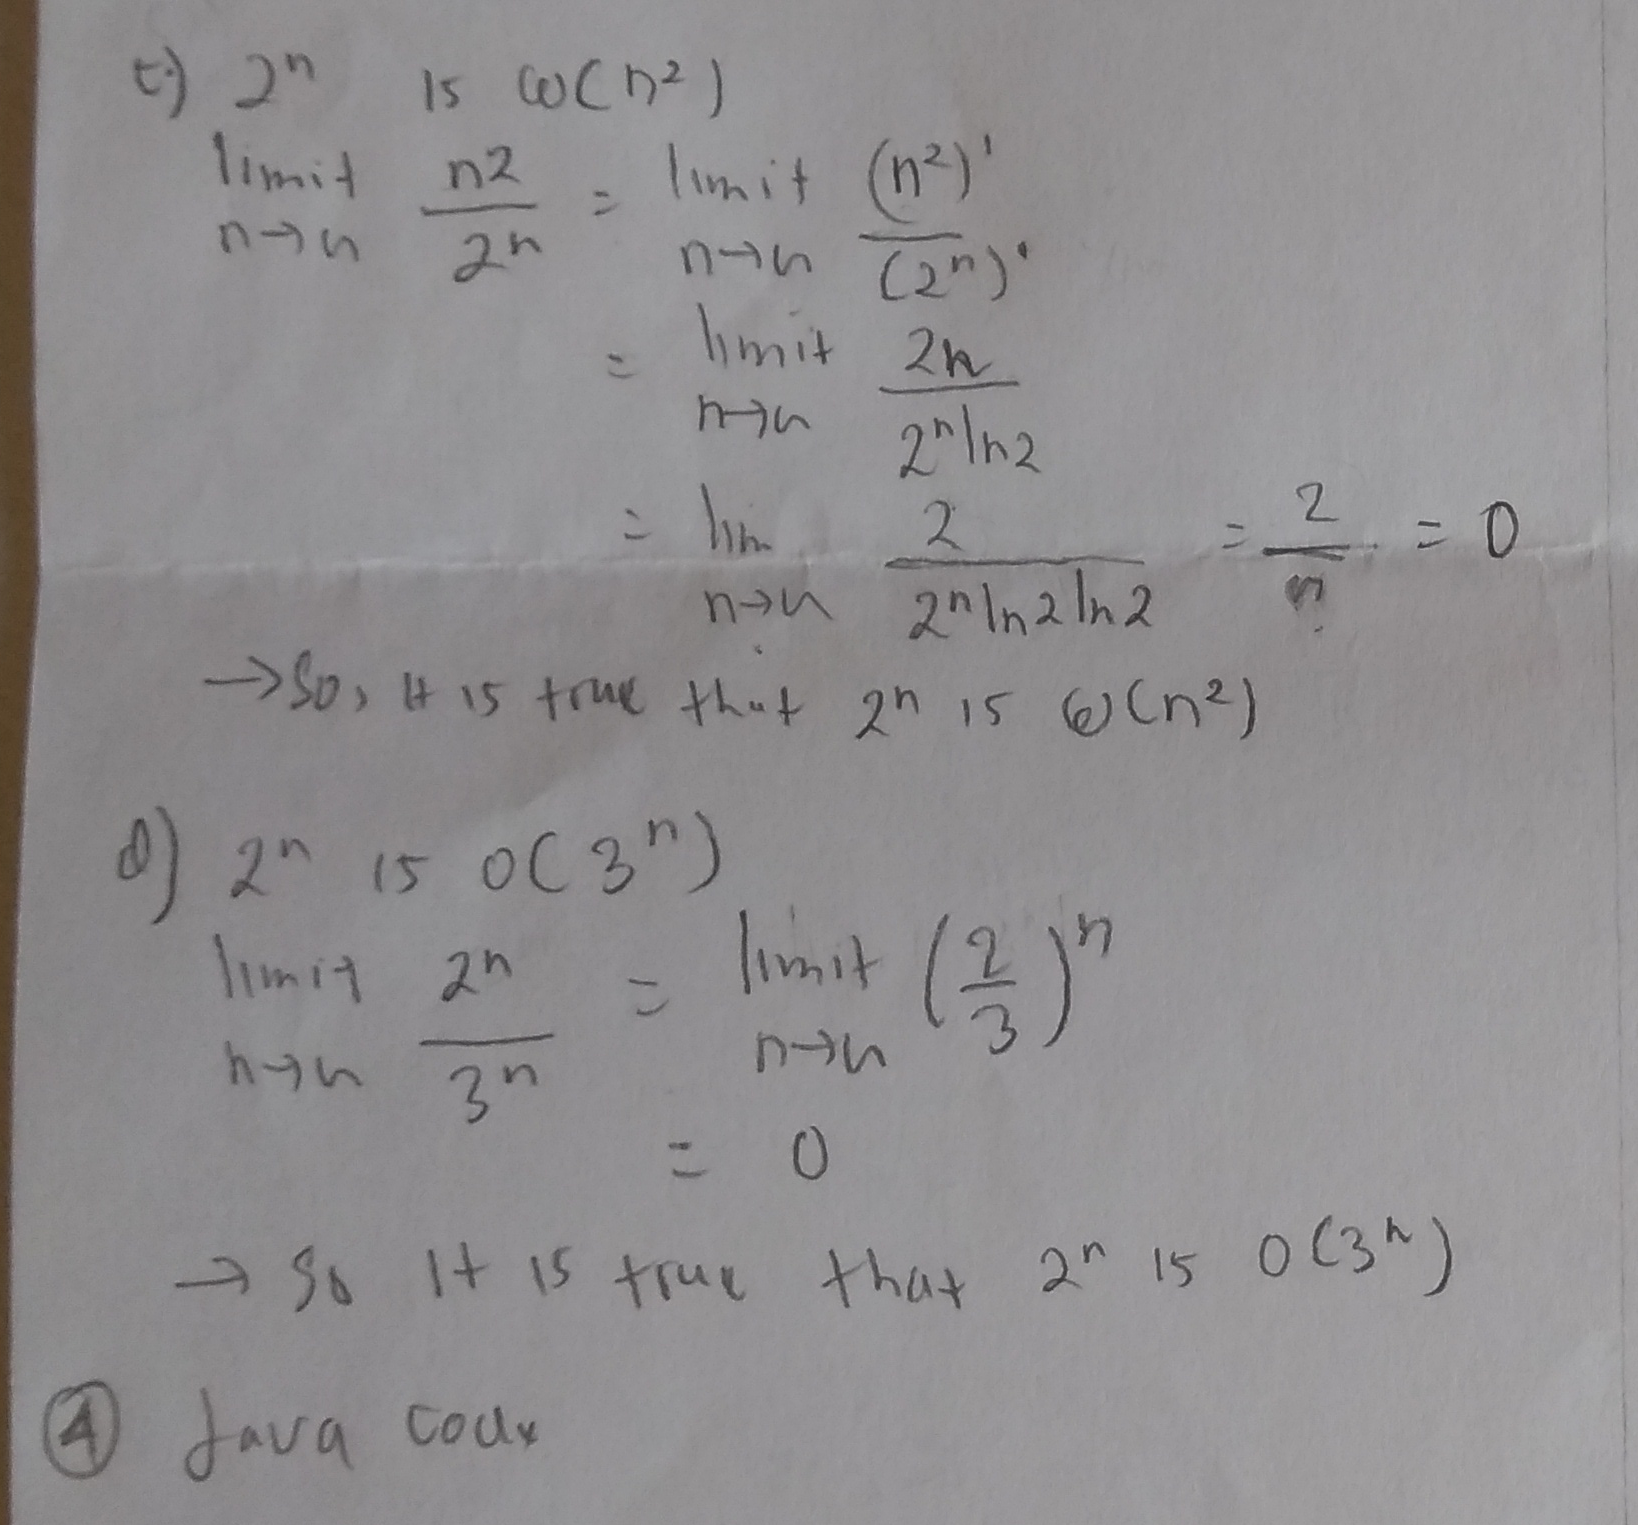 c) 2ⁿ is ω(n²)
limit n→n n2/2ⁿ = limit n→n (n²)'/(2ⁿ)'
= limit n→n 2n/2ⁿln2
= lim n→n 2/2ⁿln2ln2 = 2/n = 0
→ So, it is true that 2ⁿ is ω(n²)
d) 2ⁿ is o(3ⁿ)
limit n→n 2ⁿ/3ⁿ = limit n→n (2/3)ⁿ
= 0
→ So it is true that 2ⁿ is o(3ⁿ)
④ Java code